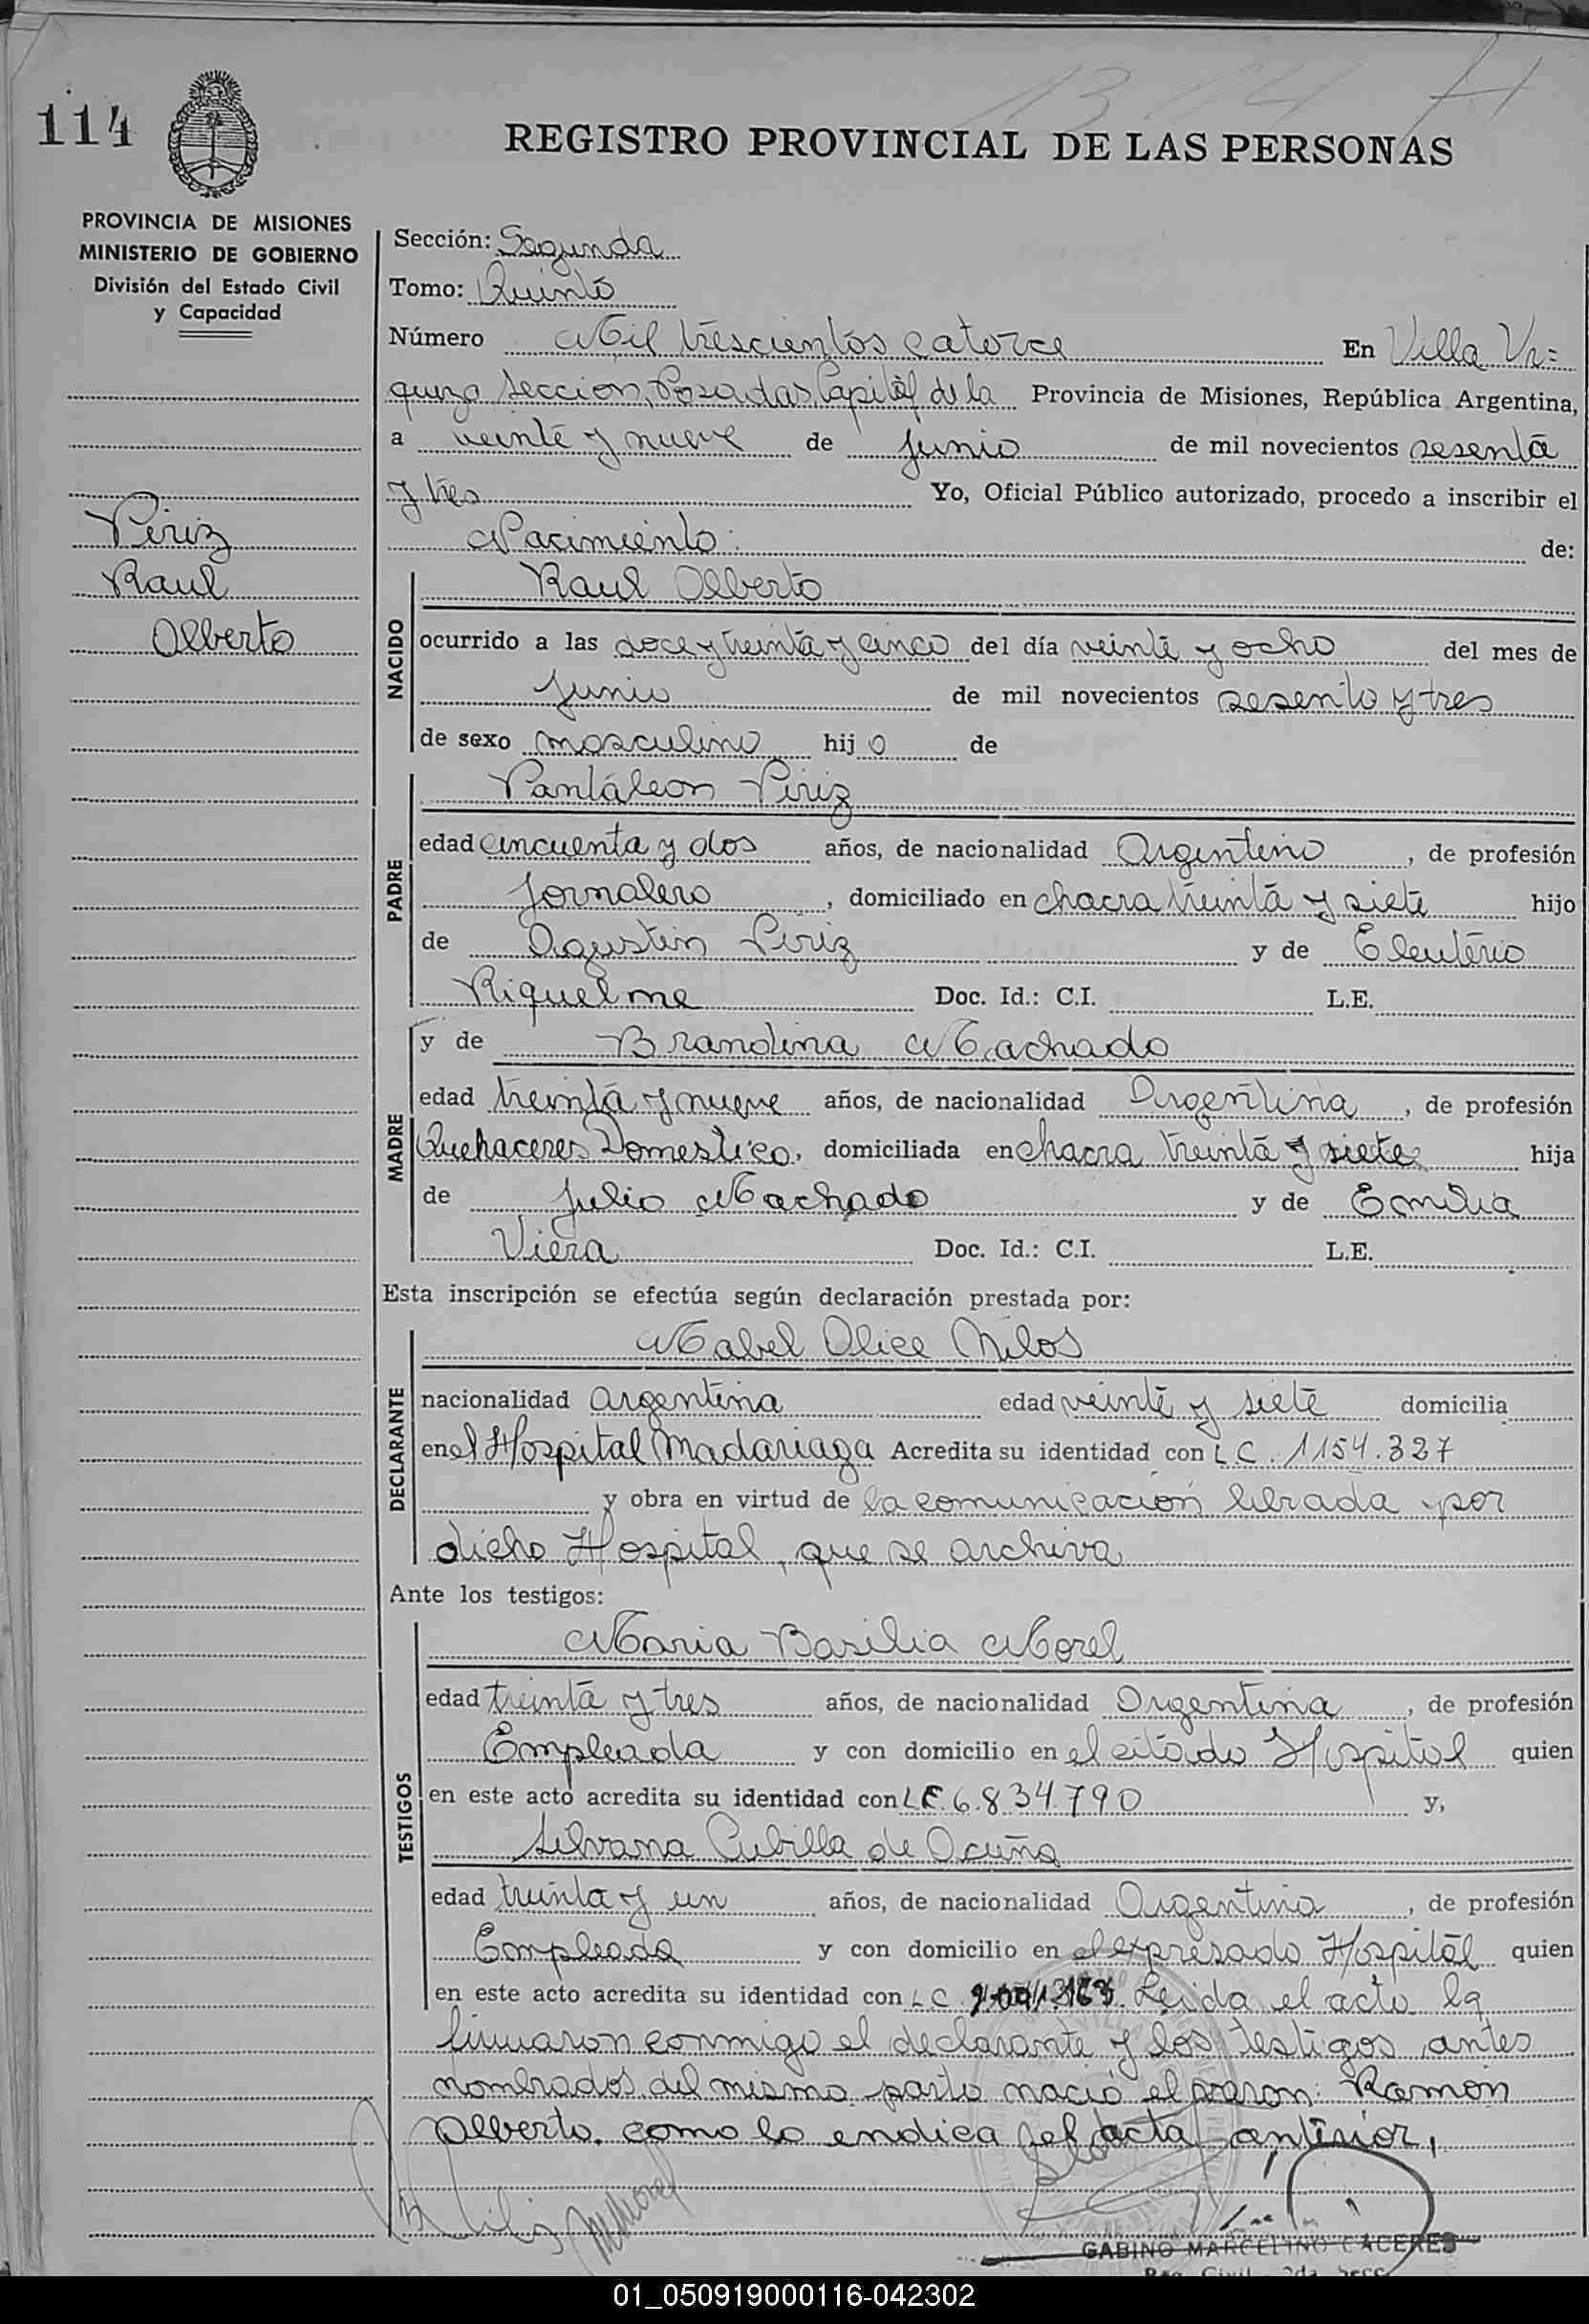 114
REGISTRO PROVINCIAL DE LAS PERSONAS
PROVINCIA DE MISIONES
MINISTERIO DE GOBIERNO
División del Estado Civil
y Capacidad
Piriz
Raul
Alberto
Sección: Segunda
Tomo: Quinto
Número Mil trescientos catorce En Villa Ur=
quiza seccion, Posadas, Capital de la Provincia de Misiones, República Argentina,
a veinte y nueve de junio de mil novecientos sesenta
y tres Yo, Oficial Público autorizado, procedo a inscribir el
Nacimiento: de:
NACIDO
Raul Alberto
ocurrido a las doce y treinta y cinco del día veinte y ocho del mes de
junio de mil novecientos sesenta y tres
de sexo masculino hijo de
PADRE
Pantaleon Piriz
edad cincuenta y dos años, de nacionalidad Argentino, de profesión
Jornalero, domiciliado en chacra treinta y siete hijo
de Agustin Piriz y de Eleuteria
Riquelme Doc. Id.: C.I. L.E.
MADRE
y de Brandina Machado
edad treinta y nueve años, de nacionalidad Argentina, de profesión
Quehaceres Domestico, domiciliada en chacra treinta y siete hija
de Julio Machado y de Emilia
Viera Doc. Id.: C.I. L.E.
Esta inscripción se efectúa según declaración prestada por:
DECLARANTE
Mabel Alice Milos
nacionalidad argentina edad veinte y siete domicilia
en el Hospital Madariaga Acredita su identidad con L C. 1154.327
y obra en virtud de la comunicación librada por
dicho Hospital, que se archiva
Ante los testigos:
TESTIGOS
Maria Basilia Morel
edad treinta y tres años, de nacionalidad Argentina, de profesión
Empleada y con domicilio en el citado Hospital quien
en este acto acredita su identidad con L.C. 6.834.790 y,
Silvana Cubilla de Acuña
edad treinta y un años, de nacionalidad Argentina, de profesión
Empleada y con domicilio en el expresado Hospital quien
en este acto acredita su identidad con L C. Leida el acta la
firmaron conmigo el declarante y los testigos antes
nombrados. del mismo parto nació el varon: Ramon
Alberto. como lo endica el acta anterior.
GABINO MARCELINO CACERES
01_050919000116-042302